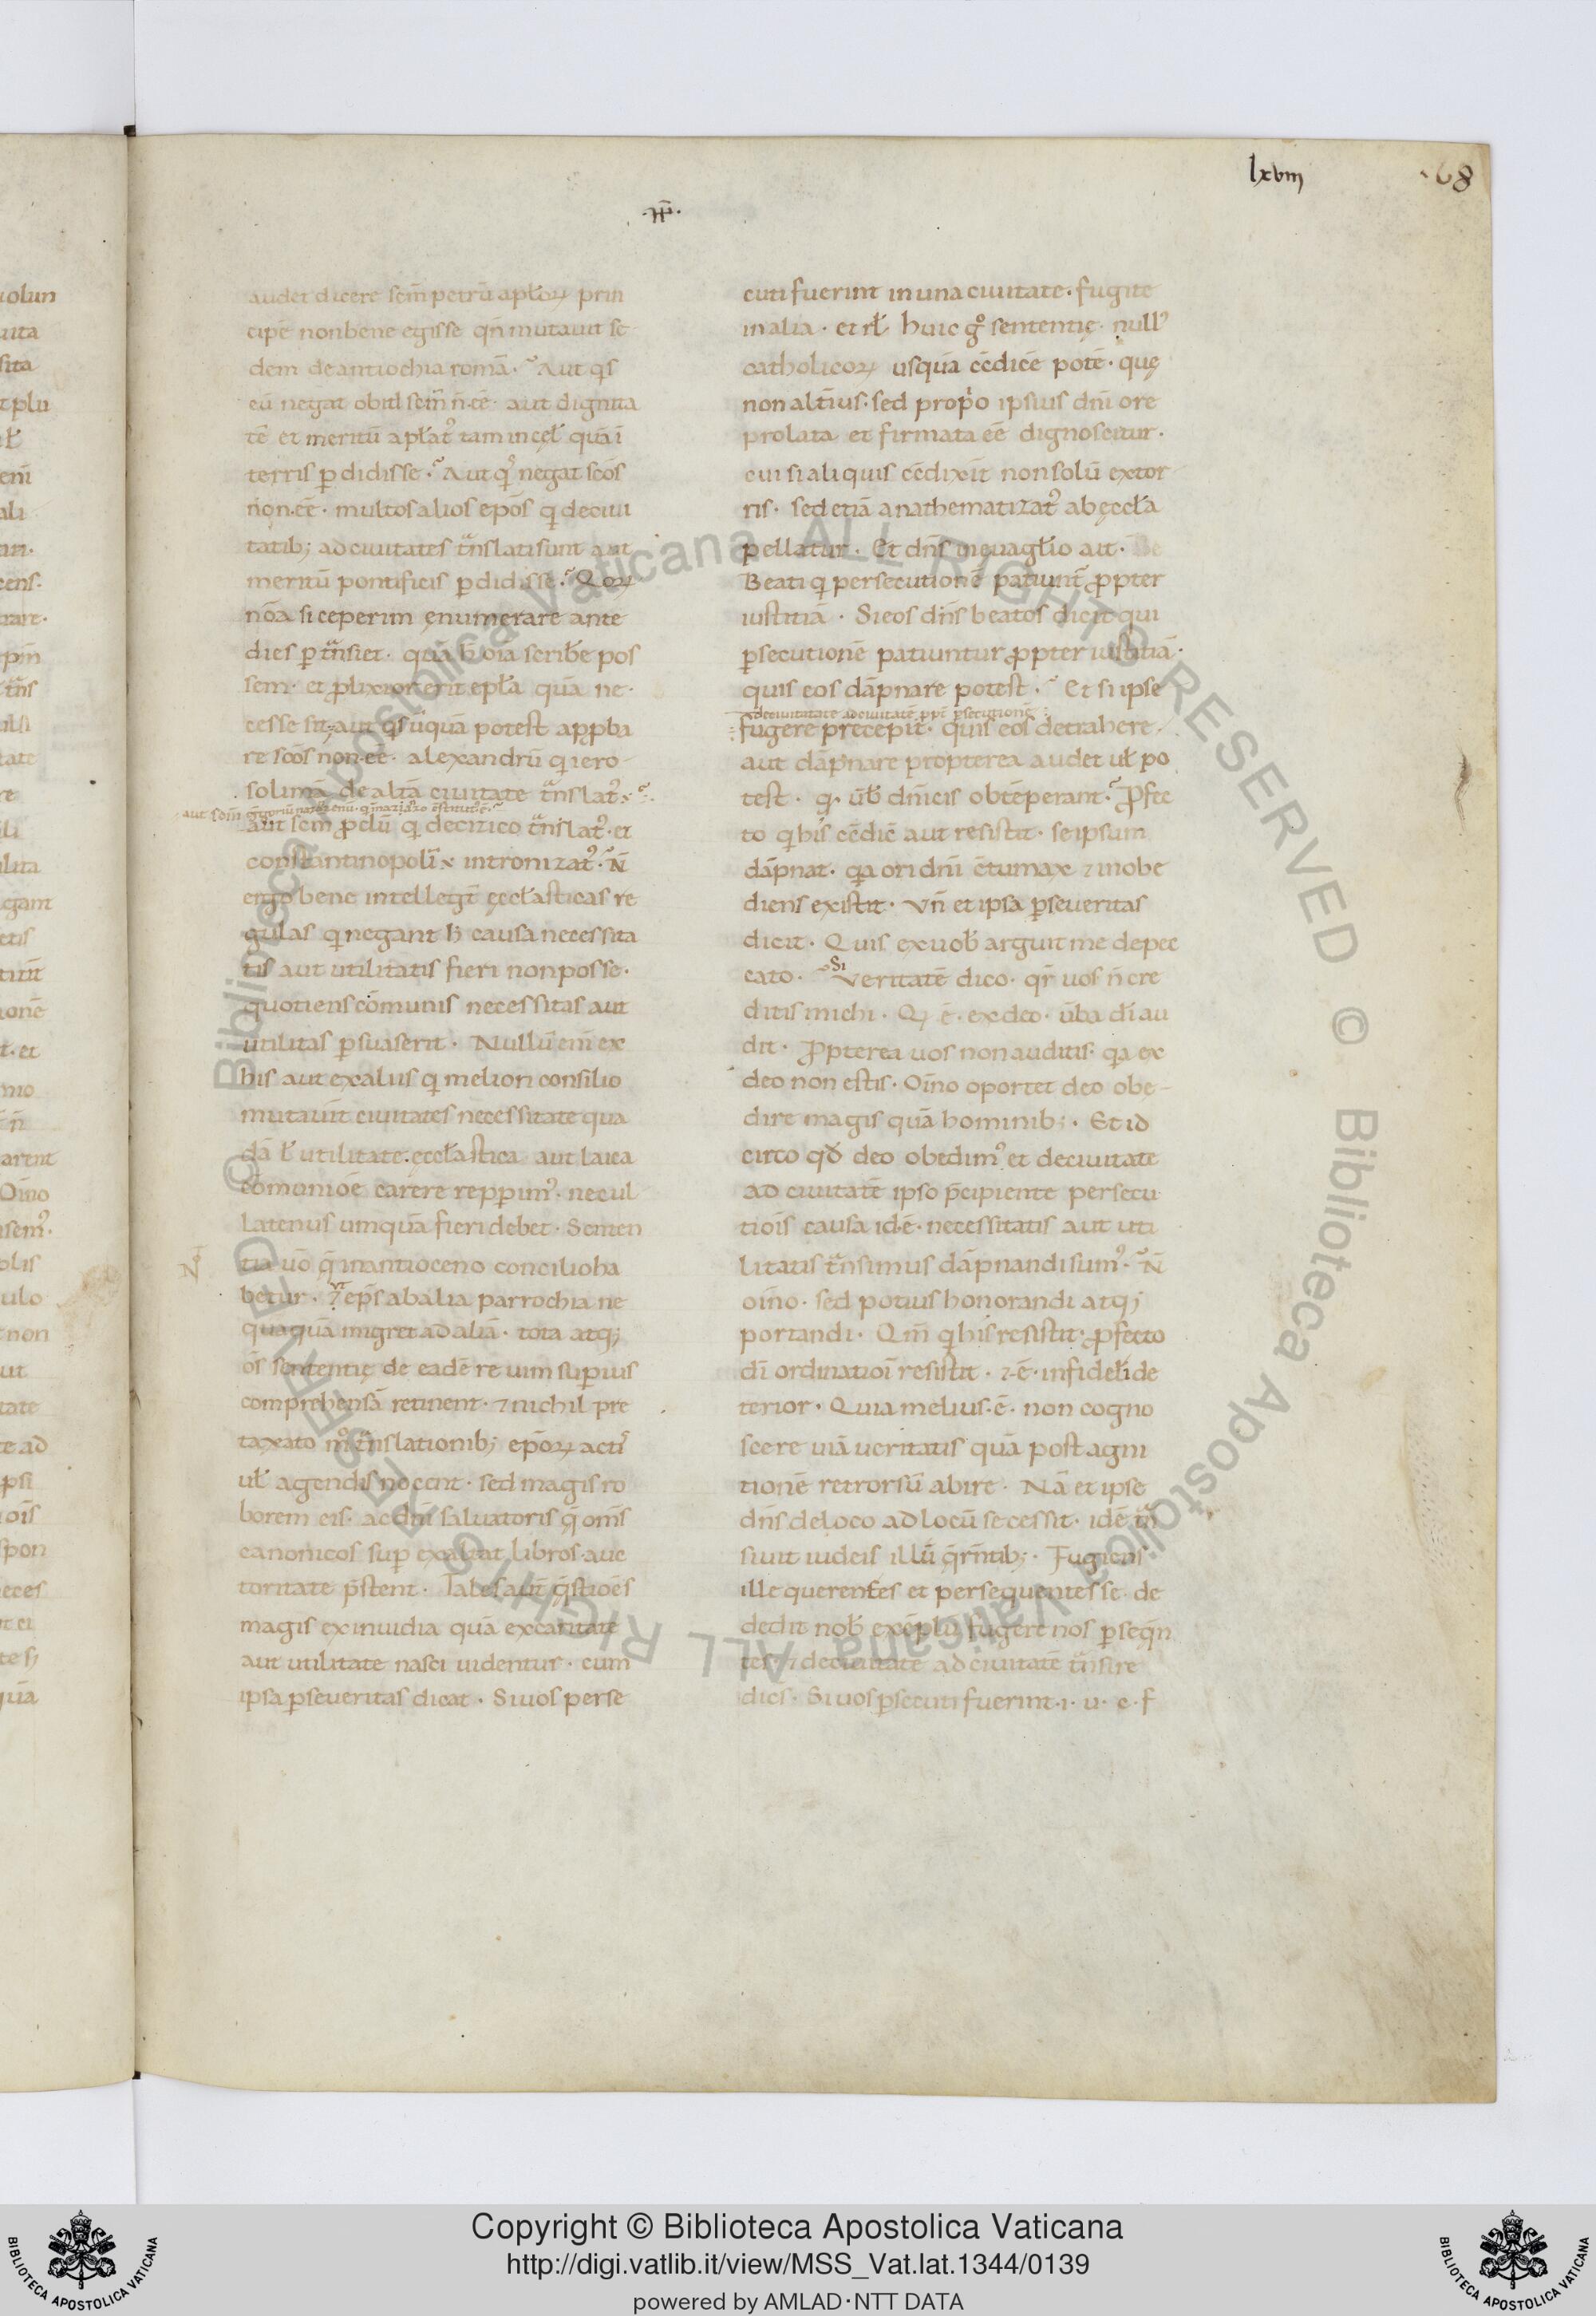 lxviii
68
audet dicere sc̄m petrū apl̄oꝝ prin
cipē non bene egisse qn̄ mutauit se
dem de antiochia romā. Aut q̓s
eū negat ob id sc̄m n̄ eē. aut dignita
tē et meritū apl̄at᷒ tam in cęl̄ quā ī
terris ꝑdidisse. Aut q̓s negat sc̄os
non eē. multos alios ep̄os qͥ de ciui
tatib; ad ciuitates tͣnslati sunt aut
meritū pontificis ꝑdidisse. Qoꝝ
nōa si ceperim enumerare ante
dies ꝑtͣnsiet. quā h̄ oīa scrib̄e pos
sem. et ꝓlixior erit epl̄a quā ne
cesse sit. aut q̓s ūquā potest apꝓba
re sc̄os non eē. alexandrū qͥ iero
solimā de alia ciuitate tͣnslat᷒.
aut sc̄m ꝓclū qͥ de cizico tͣnslat᷒. et
constantinopolī intronizat᷒. N̄
ergo bene intellegt̄ ęccl̄asticas re
gulas qͥ negant h̄ causa necessita
tis aut utilitatis fieri non posse.
quotiens cōmunis necessitas aut
utilitas ꝑsuaserit. Nullū enī ex
his aut ex aliis qͥ meliori consilio
mutauīt ciuitates necessitate qua
dā ł utilitate. ęccl̄astica aut laica
cōmunioē carere repꝑim᷒. nec ul
latenus umquā fieri debet. Senten
tia uō q̄ in antioceno concilio ha
betur. ut ep̄s ab alia parrochia ne
quaquā migret ad aliā. tota atq;
ōs sententię de eadē re uim suꝑius
comprehensā retinent. ⁊ nichil pre
taxato mͦ tͣnslationib; ep̄oꝝ actis
ul̄ agendis nocent. sed magis ro
borem eis. ac dn̄i saluatoris q̄ om̄s
canonicos suꝑ exaltat libros auc
toritate p̄stent. Tales aut̄ q̄stioēs
magis ex inuidia quā ex caritate
aut utilitate nasci uidentur. cum
ipsa ꝑ se ueritas dicat. Si uos perse
cuti fuerint in una ciuitate. fugite
in alia. et rl̄ huic gͦ sententię. null᷒
catholicoꝝ usquā cēdicē potē. quę
non alt̄ius. sed propͥo ipsius dn̄i ore
prolata et firmata eē dignoscitur.
cui si aliquis cēdixīt non solū extor
ris. sed etiā anathematizat᷒ ab ęccl̄a
pellatur. Et dn̄s in euagl̄io ait.
Beati qͥ persecutionē patiunt᷒ ꝓpter
iustitiā. Si eos dn̄s beatos dicit qui
ꝑsecutionē patiuntur ꝓpter iustitiā.
quis eos dāpnare potest. Et si ipse
de ciuitatate ad ciuitatē ꝓpt̄ ꝑsecutionē
fugere precepit. quis eos detrahere
aut dāpnare propterea audet ul̄ po
test. qͥ ūb dn̄icis obtēperant. Ꝓfec
to qͥ his cēdic̄ aut resistit. se ipsum
dāpnat. qͣa ori dn̄i cētumax ⁊ inobe
diens existit. Vn̄ et ipsa ꝑ se ueritas
dicit. Quis ex uob̄ arguit me de pec
cato. Si ueritatē dico. qr̄ uos n̄ cre
ditis michi. Qͥ ē. ex deo. ūba dī au
dit. Ꝓpterea uos non auditis. qͣa ex
deo non estis. Oīno oportet deo obe
dire magis quā hominib;. Et id
circo qd̄ deo obedim᷒ et de ciuitate
ad ciuitatē ipso p̄cipiente persecu
tiois causa id ē. necessitatis aut uti
litatis tͣnsimus dāpnandi sum᷒. N̄
oīno. sed potius honorandi atq;
portandi. Qm̄ qͥ his resistit. ꝓfecto
dī ordinatioī resistit. ⁊ ē. infidel̄i de
terior. Quia melius ē. non cogno
scere uiā ueritatis quā post agni
tionē retrorsū abire. Nā et ipse
dn̄s de loco ad locū secessit. idē tͣn
siuit iudeis illū q̄rn̄tib;. Fugiens
ille querentes et persequentes se. de
dedit nob̄ exēplū fugere nos ꝑseqn̄
tes. ⁊ de ciuitate ad ciuitatē tͣnsire
dicens. Si uos ꝑsecuti fuerint. i. u. c. f
© Biblioteca Apostolica Vaticana ALL RIGHTS RESERVED
Copyright © Biblioteca Apostolica Vaticana
http://digi.vatlib.it/view/MSS_Vat.lat.1344/0139
powered by AMLAD·NTT DATA
BIBLIOTECA APOSTOLICA VATICANA
BIBLIOTECA APOSTOLICA VATICANA